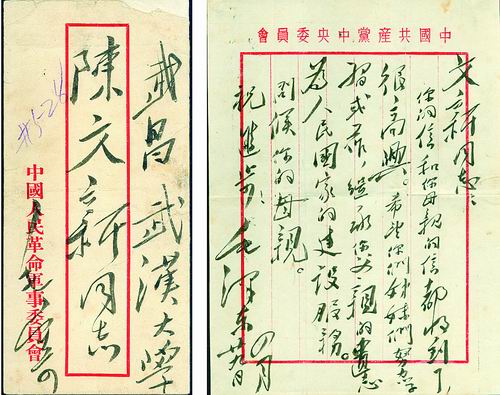 武昌武漢大學
陳文新同志
中國人民革命軍事委員會
中國共產黨中央委員會
文新同志：
你的信和你母親的信都收到了，
很高興。希望你們姊妹們努力學
習或工作，繼承你父親的遺志，
為人民國家的建設服務。
問候你的母親。
祝進步！
毛澤東
四月
廿九日